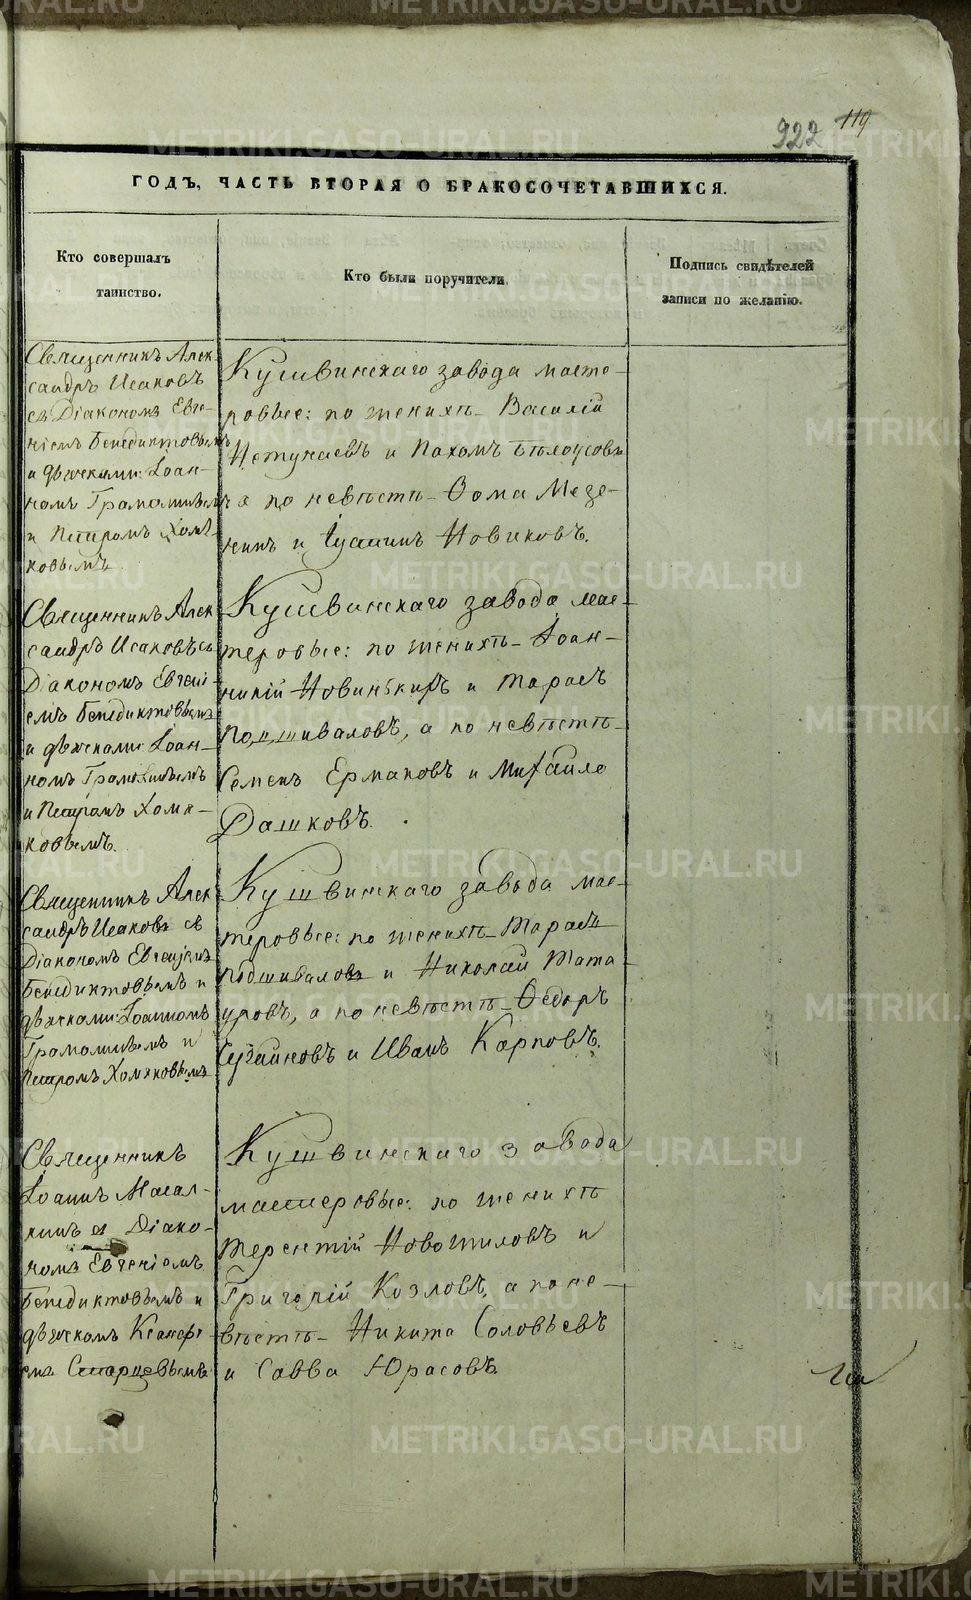 922 119
ГОДЪ, ЧАСТЬ ВТОРАЯ О БРАКОСОЧЕТАВШИХСЯ.
Кто совершалъ
таинство.
Кто были поручители.
Подпись свидѣтелей
записи по желанію.
Священникъ Алек
сандръ Исаковъ
съ Діакономъ Евге-
ніемъ Бенедиктовымъ
и дьячками: Іоан-
номъ
и Петромъ Хомя-
ковымъ
Кушвинскаго завода масте-
ровые: по женихѣ - Василій
и Пахомъ Бѣлоусовъ
а по невѣстѣ - Ѳома Мезе-
нинъ и Іустинъ Новиковъ.
Священникъ Алек
сандръ Исаковъ съ
Діакономъ Евгені-
емъ Бенедиктовымъ
и дьячками: Іоан-
номъ
и Петромъ Хомя-
ковымъ.
Кушвинскаго завода мас-
теровые: по женихѣ - Іоан-
никій и Тарасъ
Подшиваловъ, а по невѣстѣ -
Семенъ Ермаковъ и Михайло
Дашковъ.
Священникъ Алек
сандръ Исаковъ съ
Діакономъ Евгеніемъ
Бенедиктовымъ и
дьячками: Іоанномъ
и
Петромъ Хомяковымъ
Кушвинскаго завода мас-
теровые: по женихѣ - Тарасъ
Подшиваловъ и Николай Тата-
уровъ, а по невѣстѣ - Ѳедоръ
и Иванъ Карповъ.
Священникъ
Іоаннъ Масал-
кинъ съ Діако-
номъ Евгеніемъ
Бенедиктовымъ и
дьячкомъ
Старцевымъ
Кушвинскаго завода
мастеровые: по женихѣ
Терентій Новожиловъ и
Григорій Козловъ, а по не-
вѣстѣ - Никита Соловьевъ
и Савва Юрасовъ.
METRIKI.GASO-URAL.RU